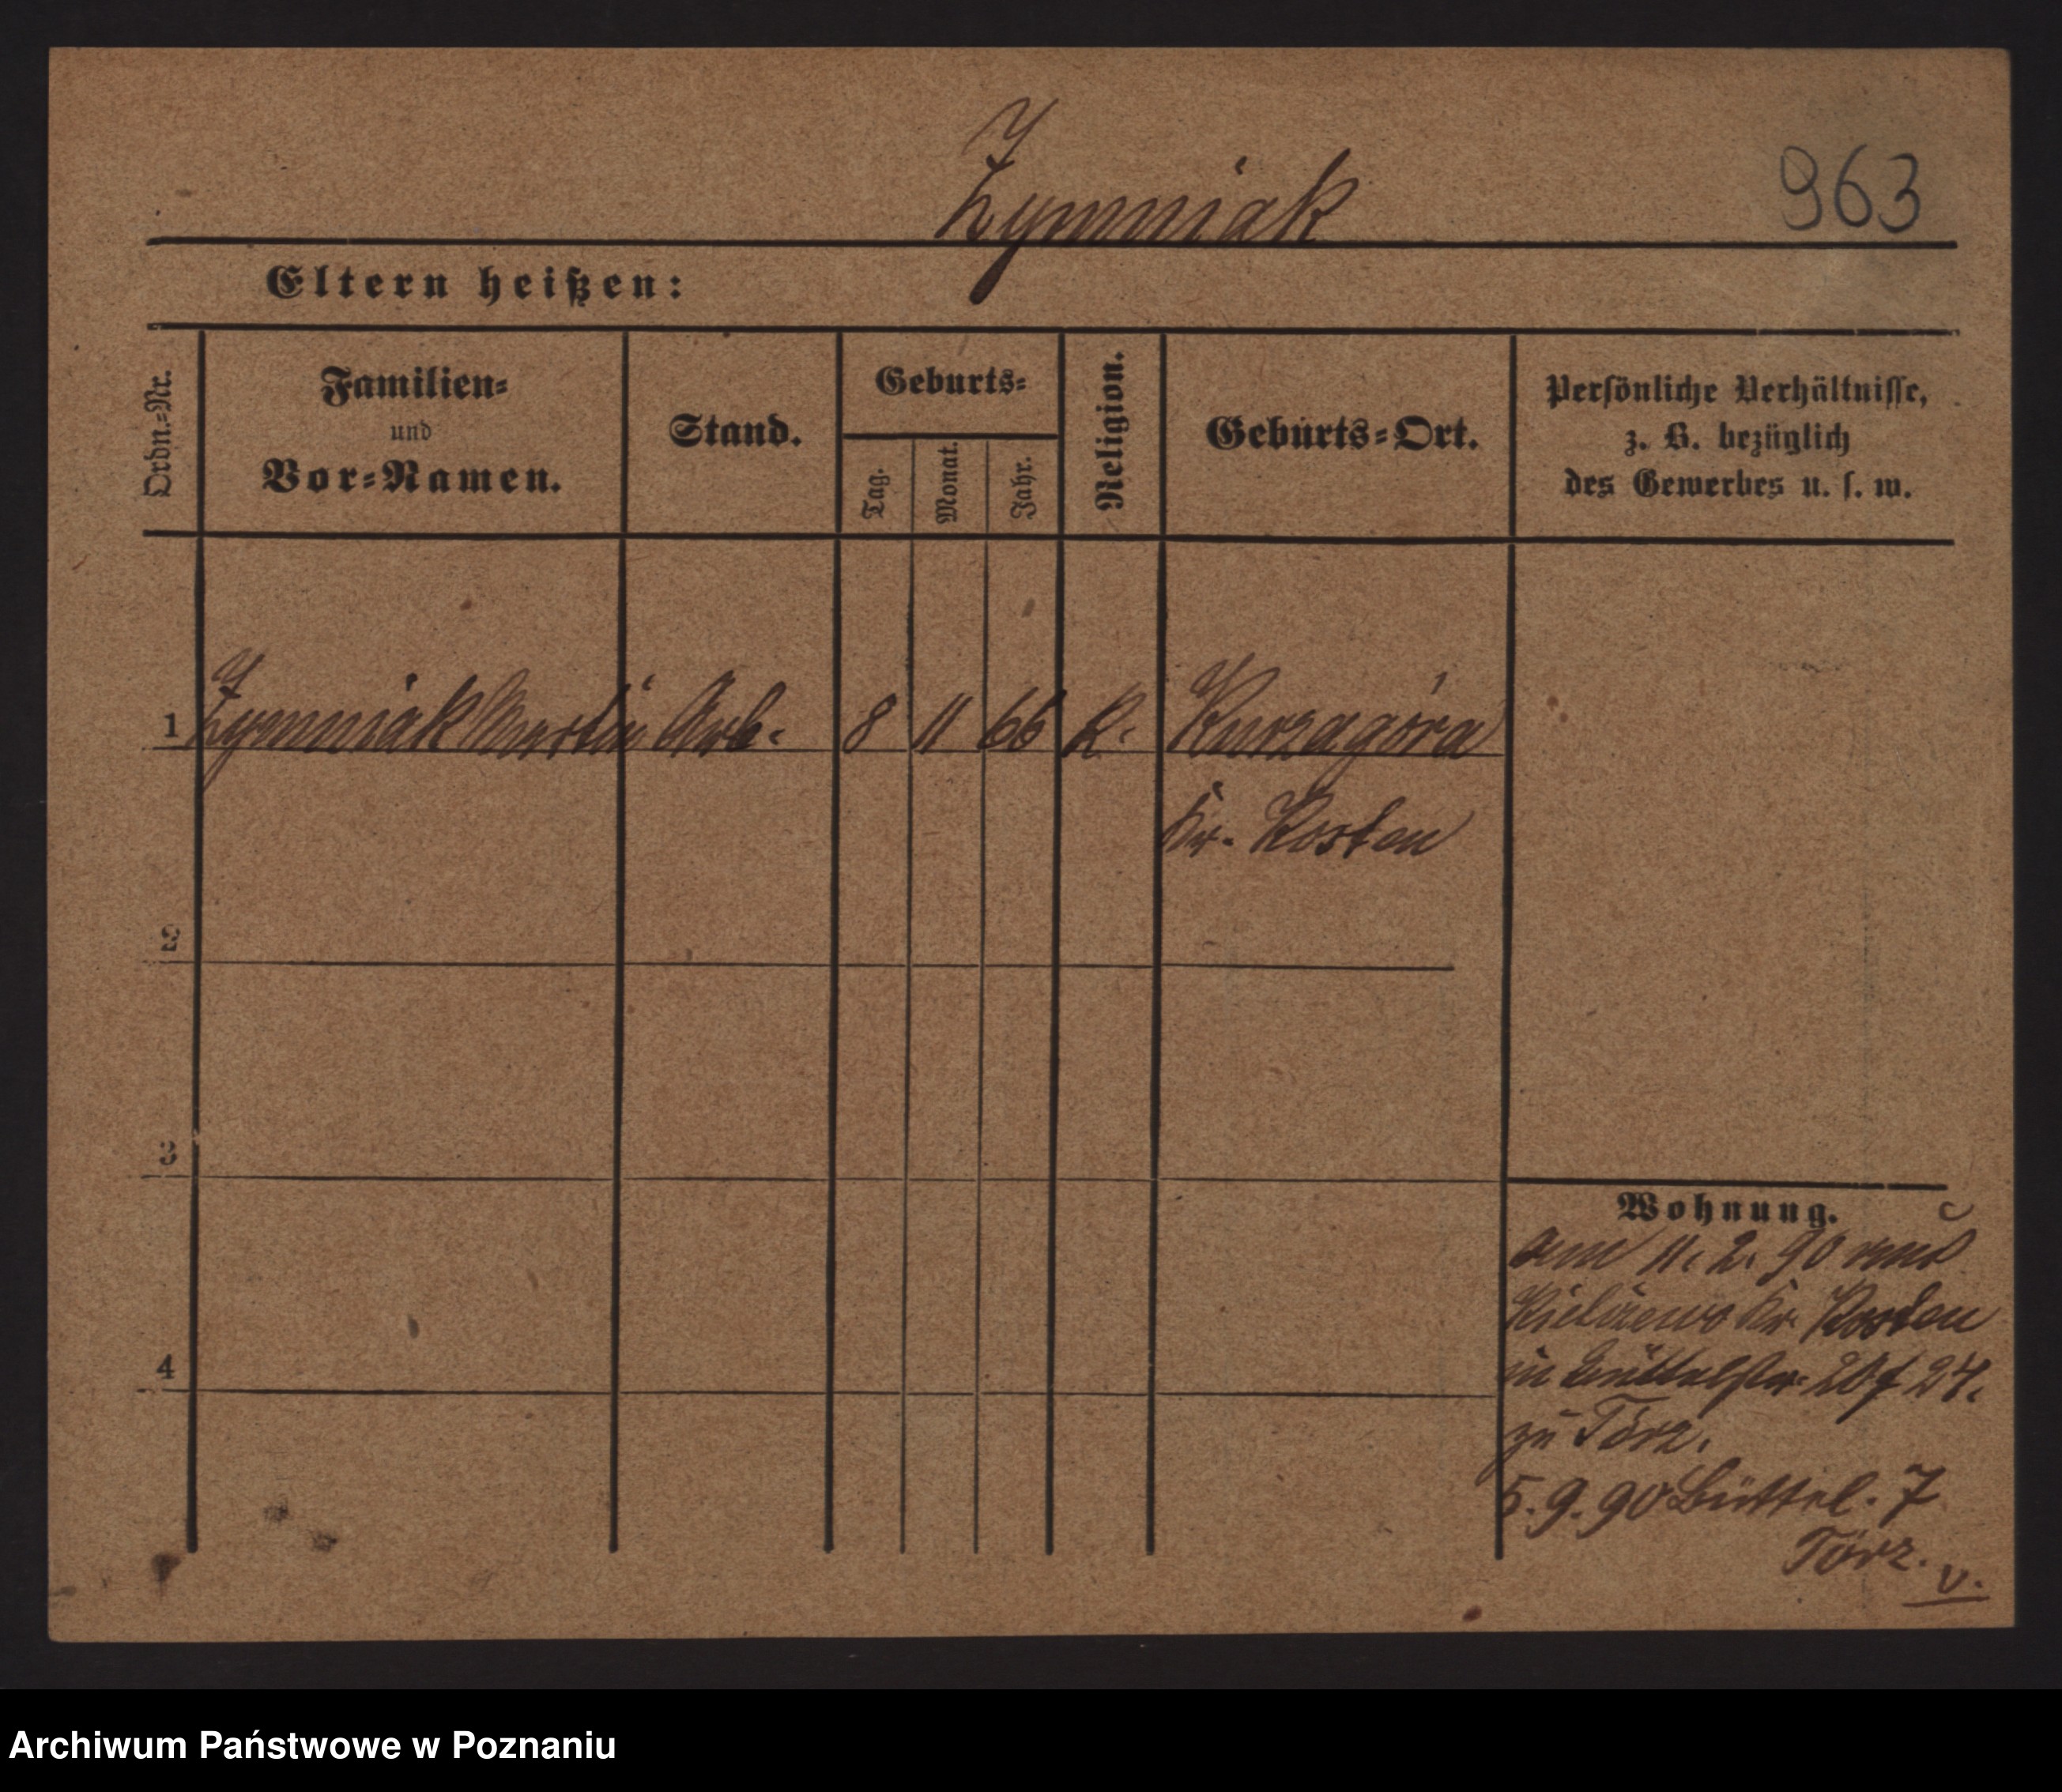 Zymniak
963
Eltern heißen:
Ordn.-Nr.
Familien-
und
Vor-Namen.
Stand.
Geburts-
Tag.
Monat.
Jahr.
Religion.
Geburts-Ort.
Persönliche Verhältnisse,
z. B. bezüglich
des Gewerbes u. s. w.
1 Zymniak Martin Arb. 8 11 66 K. Kurzagóra
Kr. Kosten
2
3
4
Wohnung.
am 11. 2. 90 aus
Kielczewo Kr. Kosten
in Büttelstr. 27.
zu Törz.
5. 9. 90 Büttel. 7
Törz.
v.
Archiwum Państwowe w Poznaniu